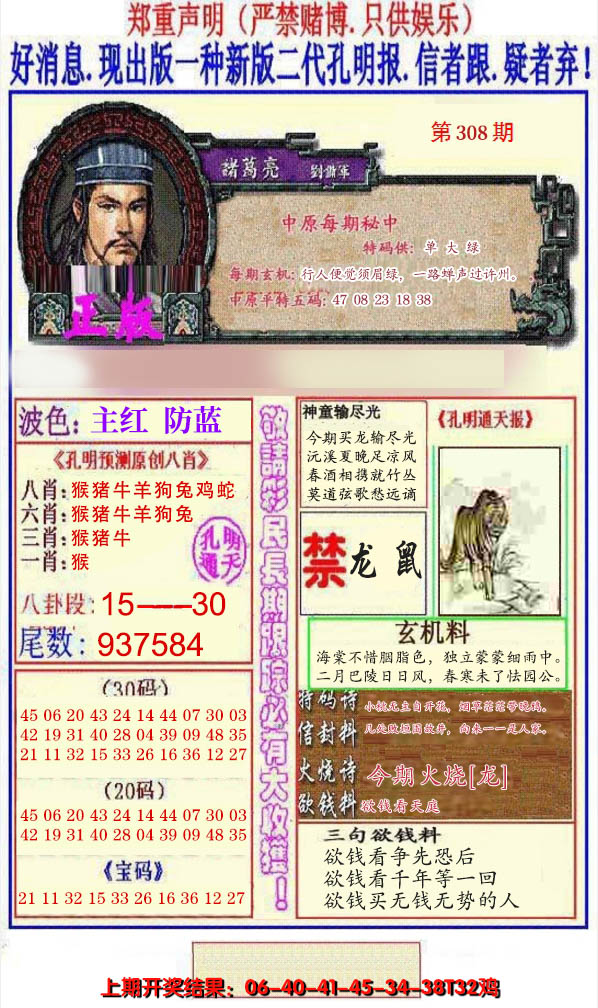 郑重声明（严禁赌博.只供娱乐）
好消息.现出版一种新版二代孔明报.信者跟.疑者弃！
第308期
諸葛亮 劉備軍
中原每期秘中
特码供：单 大 绿
每期玄机：行人便觉须眉绿，一路蝉声过许州。
中原平特五码：47 08 23 18 38
正版
波色：主红 防蓝
《孔明预测原创八肖》
八肖：猴猪牛羊狗兔鸡蛇
六肖：猴猪牛羊狗兔
三肖：猴猪牛
一肖：猴
孔明通天
八卦段：15——30
尾数：937584
（30码）
45 06 20 43 24 14 44 07 30 03
42 19 31 40 28 04 39 09 48 35
21 11 32 15 33 26 16 36 12 27
（20码）
45 06 20 43 24 14 44 07 30 03
42 19 31 40 28 04 39 09 48 35
《宝码》
21 11 32 15 33 26 16 36 12 27
敬請彩民長期跟踪必有大收獲！
神童输尽光
今期买龙输尽光
沅溪夏晚足凉风
春酒相携就竹丛
莫道弦歌愁远谪
《孔明通天报》
禁 龙 鼠
玄机料
海棠不惜胭脂色，独立蒙蒙细雨中。
二月巴陵日日风，春寒未了怯园公。
特码诗
信封料
小桃无主自开花，烟草茫茫带晚鸦。
几处败垣围故井，向来一一是人家。
火烧诗 今期火烧[龙]
欲钱料 欲钱看天庭
三句欲钱料
欲钱看争先恐后
欲钱看千年等一回
欲钱买无钱无势的人
上期开奖结果：06-40-41-45-34-38T32鸡